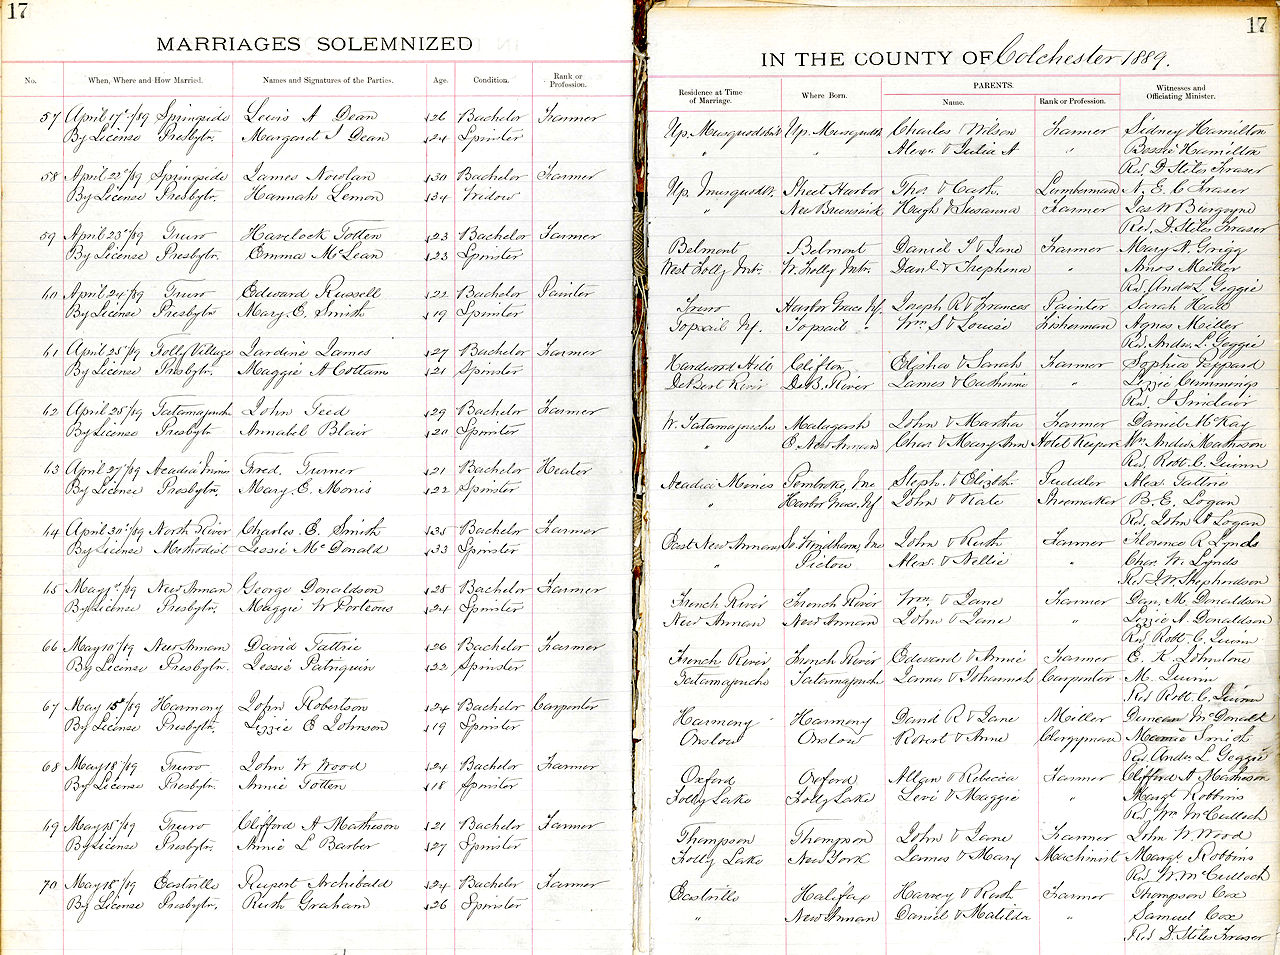 17
MARRIAGES SOLEMNIZED
No. When, Where and How Married. Names and Signatures of the Parties. Age. Condition. Rank or Profession.
57 April 17/89 Springside Lewis A Dean 26 Bachelor Farmer
By License Presbytn. Margaret I Dean 24 Spinster
58 April 23/89 Springside James Nowlan 30 Bachelor Farmer
By License Presbytn. Hannah Lemon 34 Widow
59 April 23/89 Truro Havelock Totten 23 Bachelor Farmer
By License Presbytn. Emma McLean 23 Spinster
60 April 24/89 Truro Edward Russell 22 Bachelor Painter
By License Presbytn. Mary E. Smith 19 Spinster
61 April 25/89 Folly Village Jardine James 27 Bachelor Farmer
By License Presbytn. Maggie A Cottam 21 Spinster
62 April 25/89 Tatamagouche John Teed 29 Bachelor Farmer
By License Presbytn. Annabel Blair 20 Spinster
63 April 27/89 Acadia Mines Fred. Turner 21 Bachelor Heater
By License Presbytn. Mary E. Morris 22 Spinster
64 April 30/89 North River Charles E Smith 35 Bachelor Farmer
By License Methodist Jessie McDonald 33 Spinster
65 May 1/89 New Annan George Donaldson 28 Bachelor Farmer
By License Presbytn. Maggie W Porteous 24 Spinster
66 May 10/89 New Annan David Tattrie 26 Bachelor Farmer
By License Presbytn. Jessie Patriquin 22 Spinster
67 May 15/89 Harmony John Robertson 24 Bachelor Carpenter
By License Presbytn. Lizzie E Johnson 19 Spinster
68 May 18/89 Truro John W Wood 24 Bachelor Farmer
By License Presbytn. Annie Totten 18 Spinster
69 May 15/89 Truro Clifford A Matheson 21 Bachelor Farmer
By License Presbytn. Annie L Barber 27 Spinster
70 May 18/89 Eastville Rupert Archibald 24 Bachelor Farmer
By License Presbytn. Ruth Graham 26 Spinster
17
IN THE COUNTY OF Colchester 1889.
Residence at Time of Marriage. Where Born. PARENTS. Name. Rank or Profession. Witnesses and Officiating Minister.
Up. Musquodobit Up. Musquodt. Charles Wilson Farmer Sidney Hamilton
" " Alexr. & Julia A " Bessie Hamilton
Rev. D. Stiles Fraser
Up. Musquodt. Sheet Harbor Thos & Cath. Lumberman A. E. C Fraser
" New Brunswick Hugh & Susanna Farmer Jas W Burgoyne
Rev. D. Stiles Fraser
Belmont Belmont Daniel T & Jane Farmer Mary A. Grigg
West Folly Mtn. W. Folly Mtn. Danl. & Tryphena " Amos Miller
Rev. Andw. L. Geggie
Truro Harbor Grace Nf. Joseph R & Frances Painter Sarah Hall
Topsail Nf. Topsail " Wm S & Louise Fisherman Agnes Miller
Rev. Andw. L. Geggie
Hardwood Hill Clifton Elisha & Sarah Farmer Sophia Peppard
DeBert River DeB. River James & Catherine " Lizzie Cummings
Rev. J Sinclair
W. Tatamagouche Malagash John & Martha Farmer Daniel McKay
" E. New Annan Chas. & Mary Ann Hotel Keeper Mrs. Andrew Matheson
Rev. Robt. C. Quinn
Acadia Mines Pembroke, Me Steph. & Elizbh. Puddler Alex. Tattrie
" Harbor Grace, Nf John & Kate Shoemaker B. E. Logan
Rev. John A Logan
East New Annan So. Windham, Me John & Ruth Farmer Florence R Lynds
" Pictou Alex. & Nellie " Chas. W. Lynds
Rev. J. W. Shepherdson
French River French River Wm. & Jane Farmer Dan. M. Donaldson
New Annan New Annan John & Jane " Lizzie A. Donaldson
Rev. Robt. C. Quinn
French River French River Edward & Annie Farmer E. K. Johnstone
Tatamagouche Tatamagouche James & Johannah Carpenter M. Quinn
Rev Robt. C. Quinn
Harmony Harmony David R & Jane Miller Duncan McDonald
Onslow Onslow Robert & Anne Clergyman Mamie Smith
Rev. Andw L. Geggie
Oxford Oxford Allan & Rebecca Farmer Clifford A Matheson
Folly Lake Folly Lake Levi & Maggie " Margt. Robbins
Rev. Wm McCulloch
Thompson Thompson John & Jane Farmer John W. Wood
Folly Lake New York James & Mary Machinist Margt. Robbins
Rev. W. McCulloch
Eastville Halifax Harvey & Ruth Farmer Thompson Cox
" New Annan Daniel & Matilda " Samuel Cox
Rev. D. Stiles Fraser